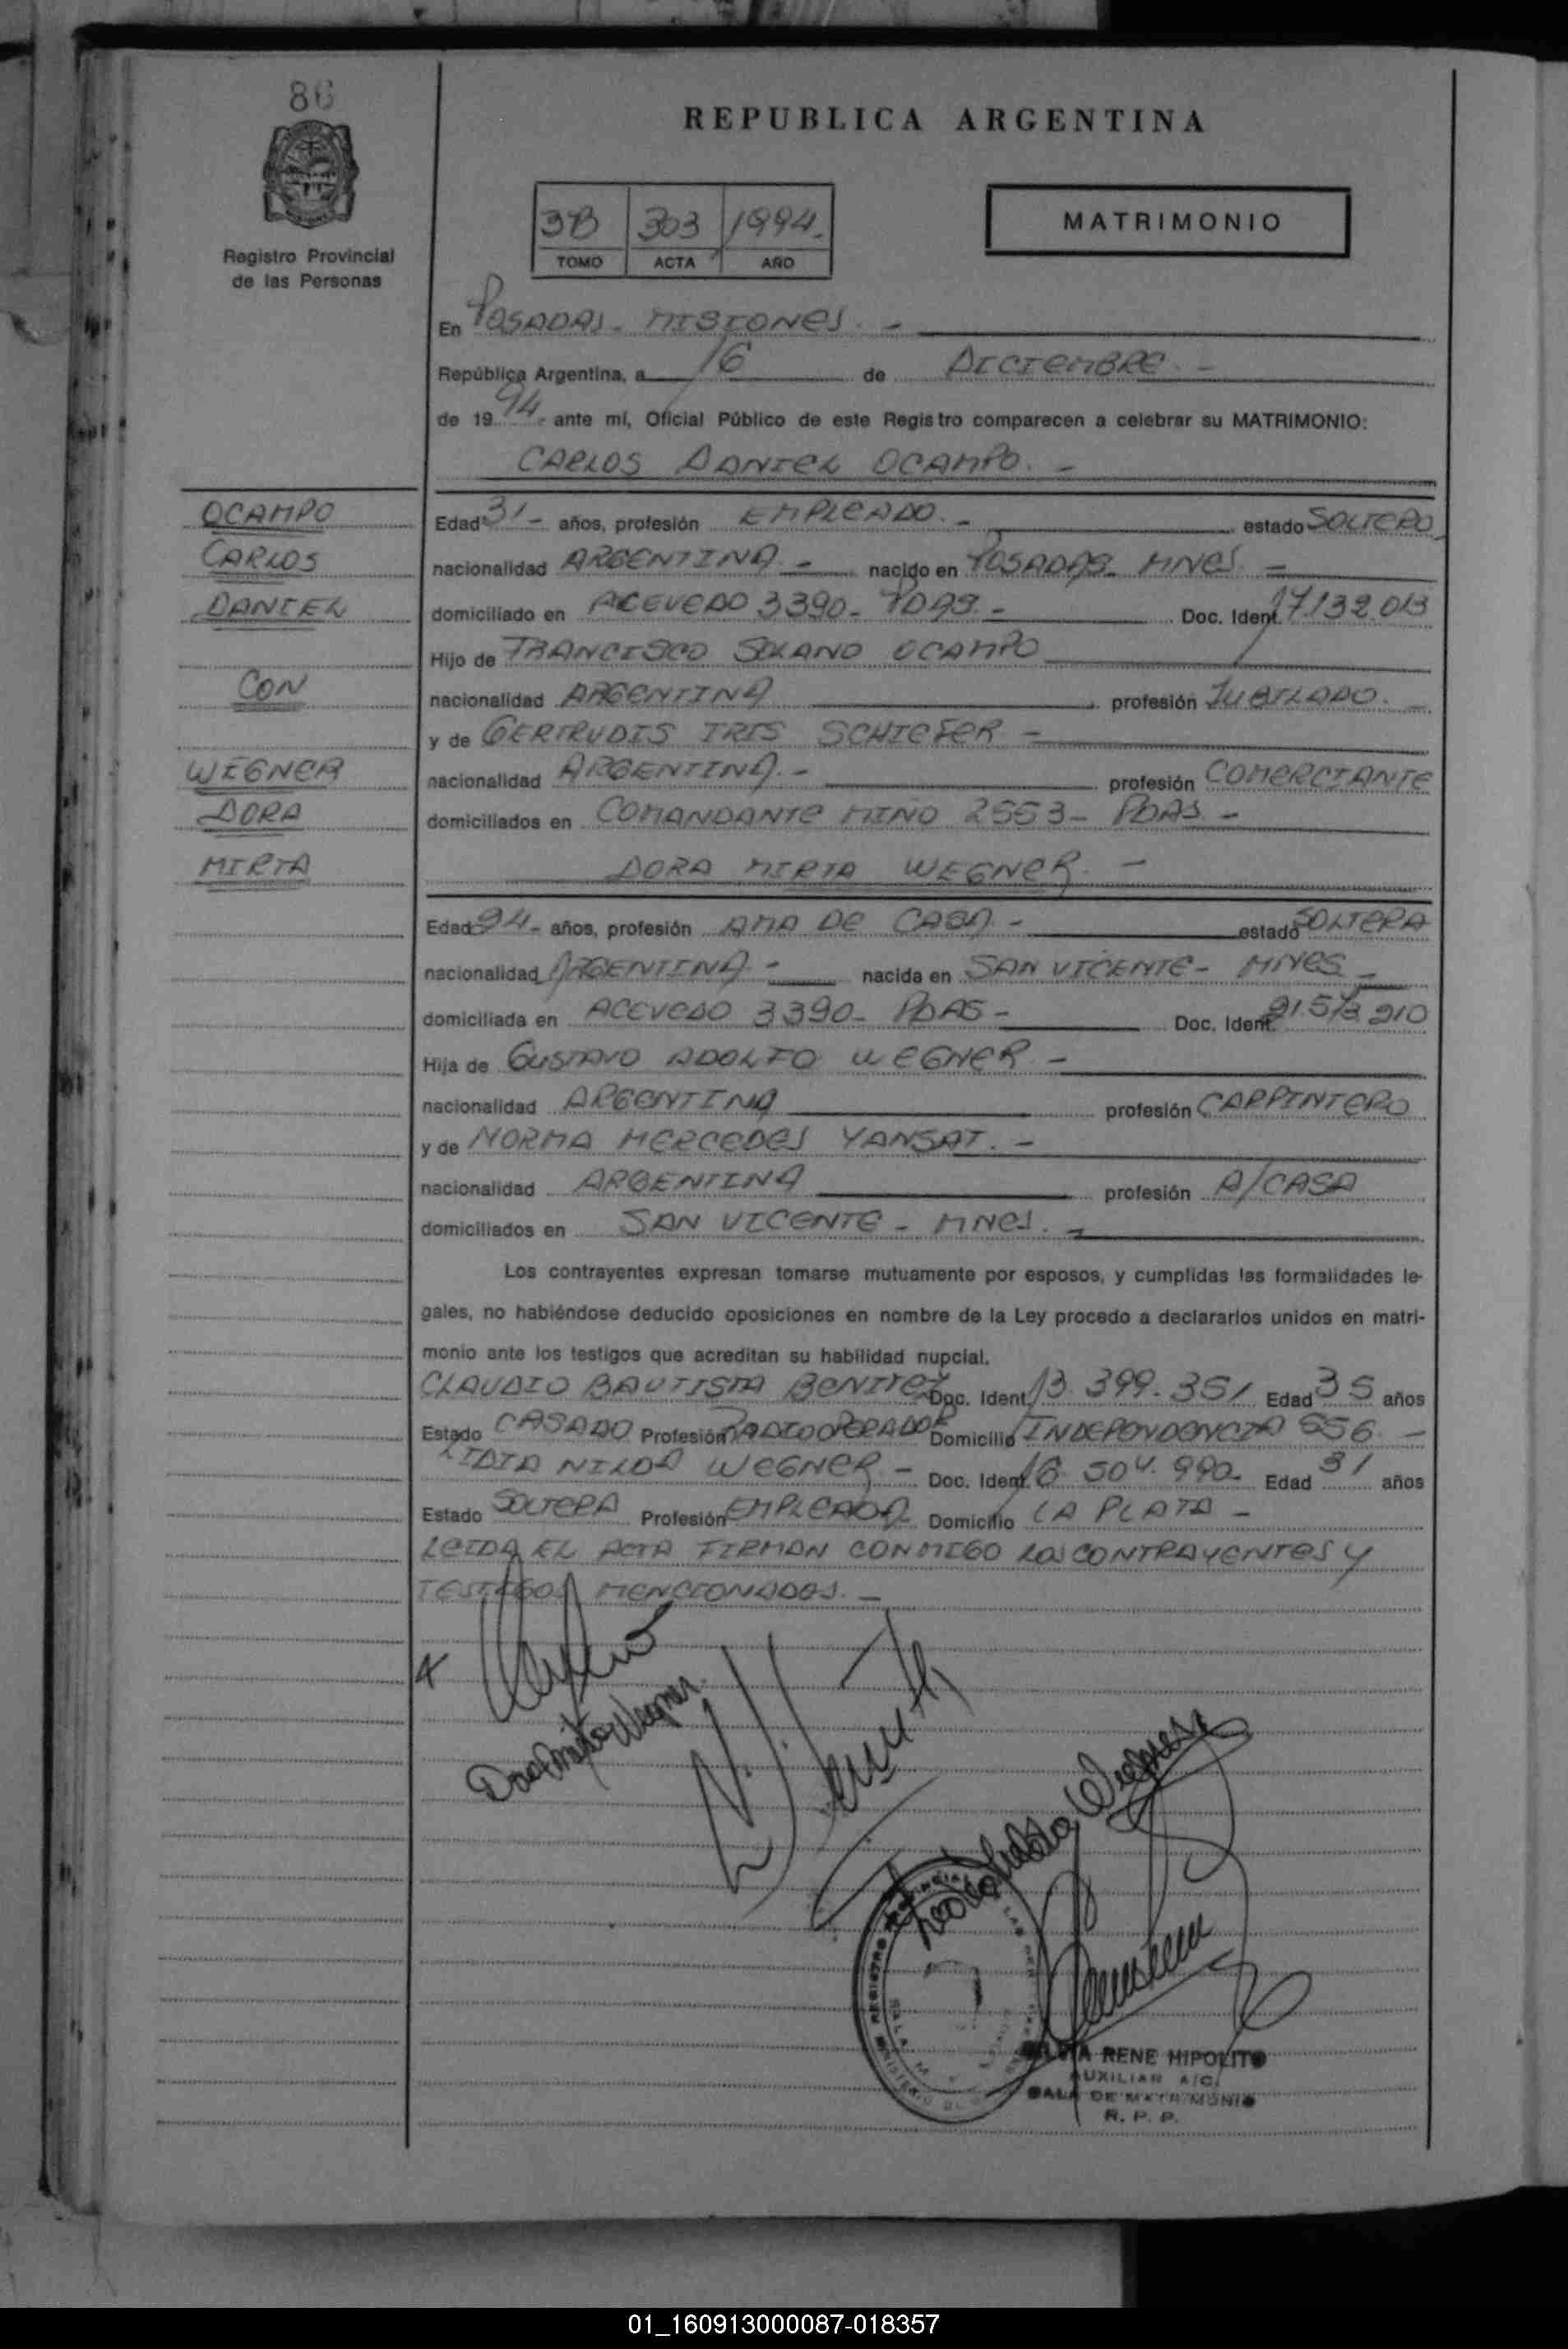 86
REPUBLICA ARGENTINA
Registro Provincial
de las Personas
3B 303 1994.
TOMO ACTA AÑO
MATRIMONIO
En POSADAS - MISIONES. -
República Argentina, a 16 de DICIEMBRE. -
de 1994.- ante mí, Oficial Público de este Registro comparecen a celebrar su MATRIMONIO:
CARLOS DANIEL OCAMPO. -
OCAMPO
CARLOS
DANIEL
CON
WEGNER
DORA
MIRTA
Edad 31- años, profesión EMPLEADO. - estado SOLTERO
nacionalidad ARGENTINA - nacido en POSADAS - MNES -
domiciliado en ACEVEDO 3390- PDAS. - Doc. Ident. 17.132.013
Hijo de FRANCISCO SOLANO OCAMPO
nacionalidad ARGENTINA profesión JUBILADO. -
y de GERTRUDIS IRIS SCHIEFER -
nacionalidad ARGENTINA. - profesión COMERCIANTE
domiciliados en COMANDANTE MIÑO 2553- PDAS -
DORA MIRTA WEGNER. -
Edad años, profesión AMA DE CASA - estado SOLTERA
nacionalidad ARGENTINA - nacida en SAN VICENTE - MNES -
domiciliada en ACEVEDO 3390- PDAS - Doc. Ident.
Hija de GUSTAVO ADOLFO WEGNER -
nacionalidad ARGENTINA profesión CARPINTERO
y de NORMA MERCEDES YANSAT. -
nacionalidad ARGENTINA profesión A/CASA
domiciliados en SAN VICENTE - MNES. -
Los contrayentes expresan tomarse mutuamente por esposos, y cumplidas las formalidades le-
gales, no habiéndose deducido oposiciones en nombre de la Ley procedo a declararlos unidos en matri-
monio ante los testigos que acreditan su habilidad nupcial.
CLAUDIO BAUTISTA BENITEZ Doc. Ident. 13.399.351 Edad 35 años
Estado CASADO Profesión RADIOOPERADOR Domicilio INDEPENDENCIA 656 -
LIDIA NILDA WEGNER - Doc. Ident. 16.504.990- Edad 31 años
Estado SOLTERA Profesión EMPLEADA Domicilio LA PLATA -
LEIDA EL ACTA FIRMAN CONMIGO LOS CONTRAYENTES Y
TESTIGOS MENCIONADOS. -
Dora Mirta Wegner
RENE HIPOLITO
AUXILIAR A/C.
SALA DE MATRIMONIO
R. P. P.
01_160913000087-018357